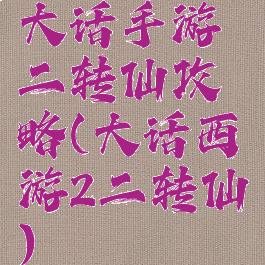 大话手游
二转仙攻
略(大话西
游2二转仙
)